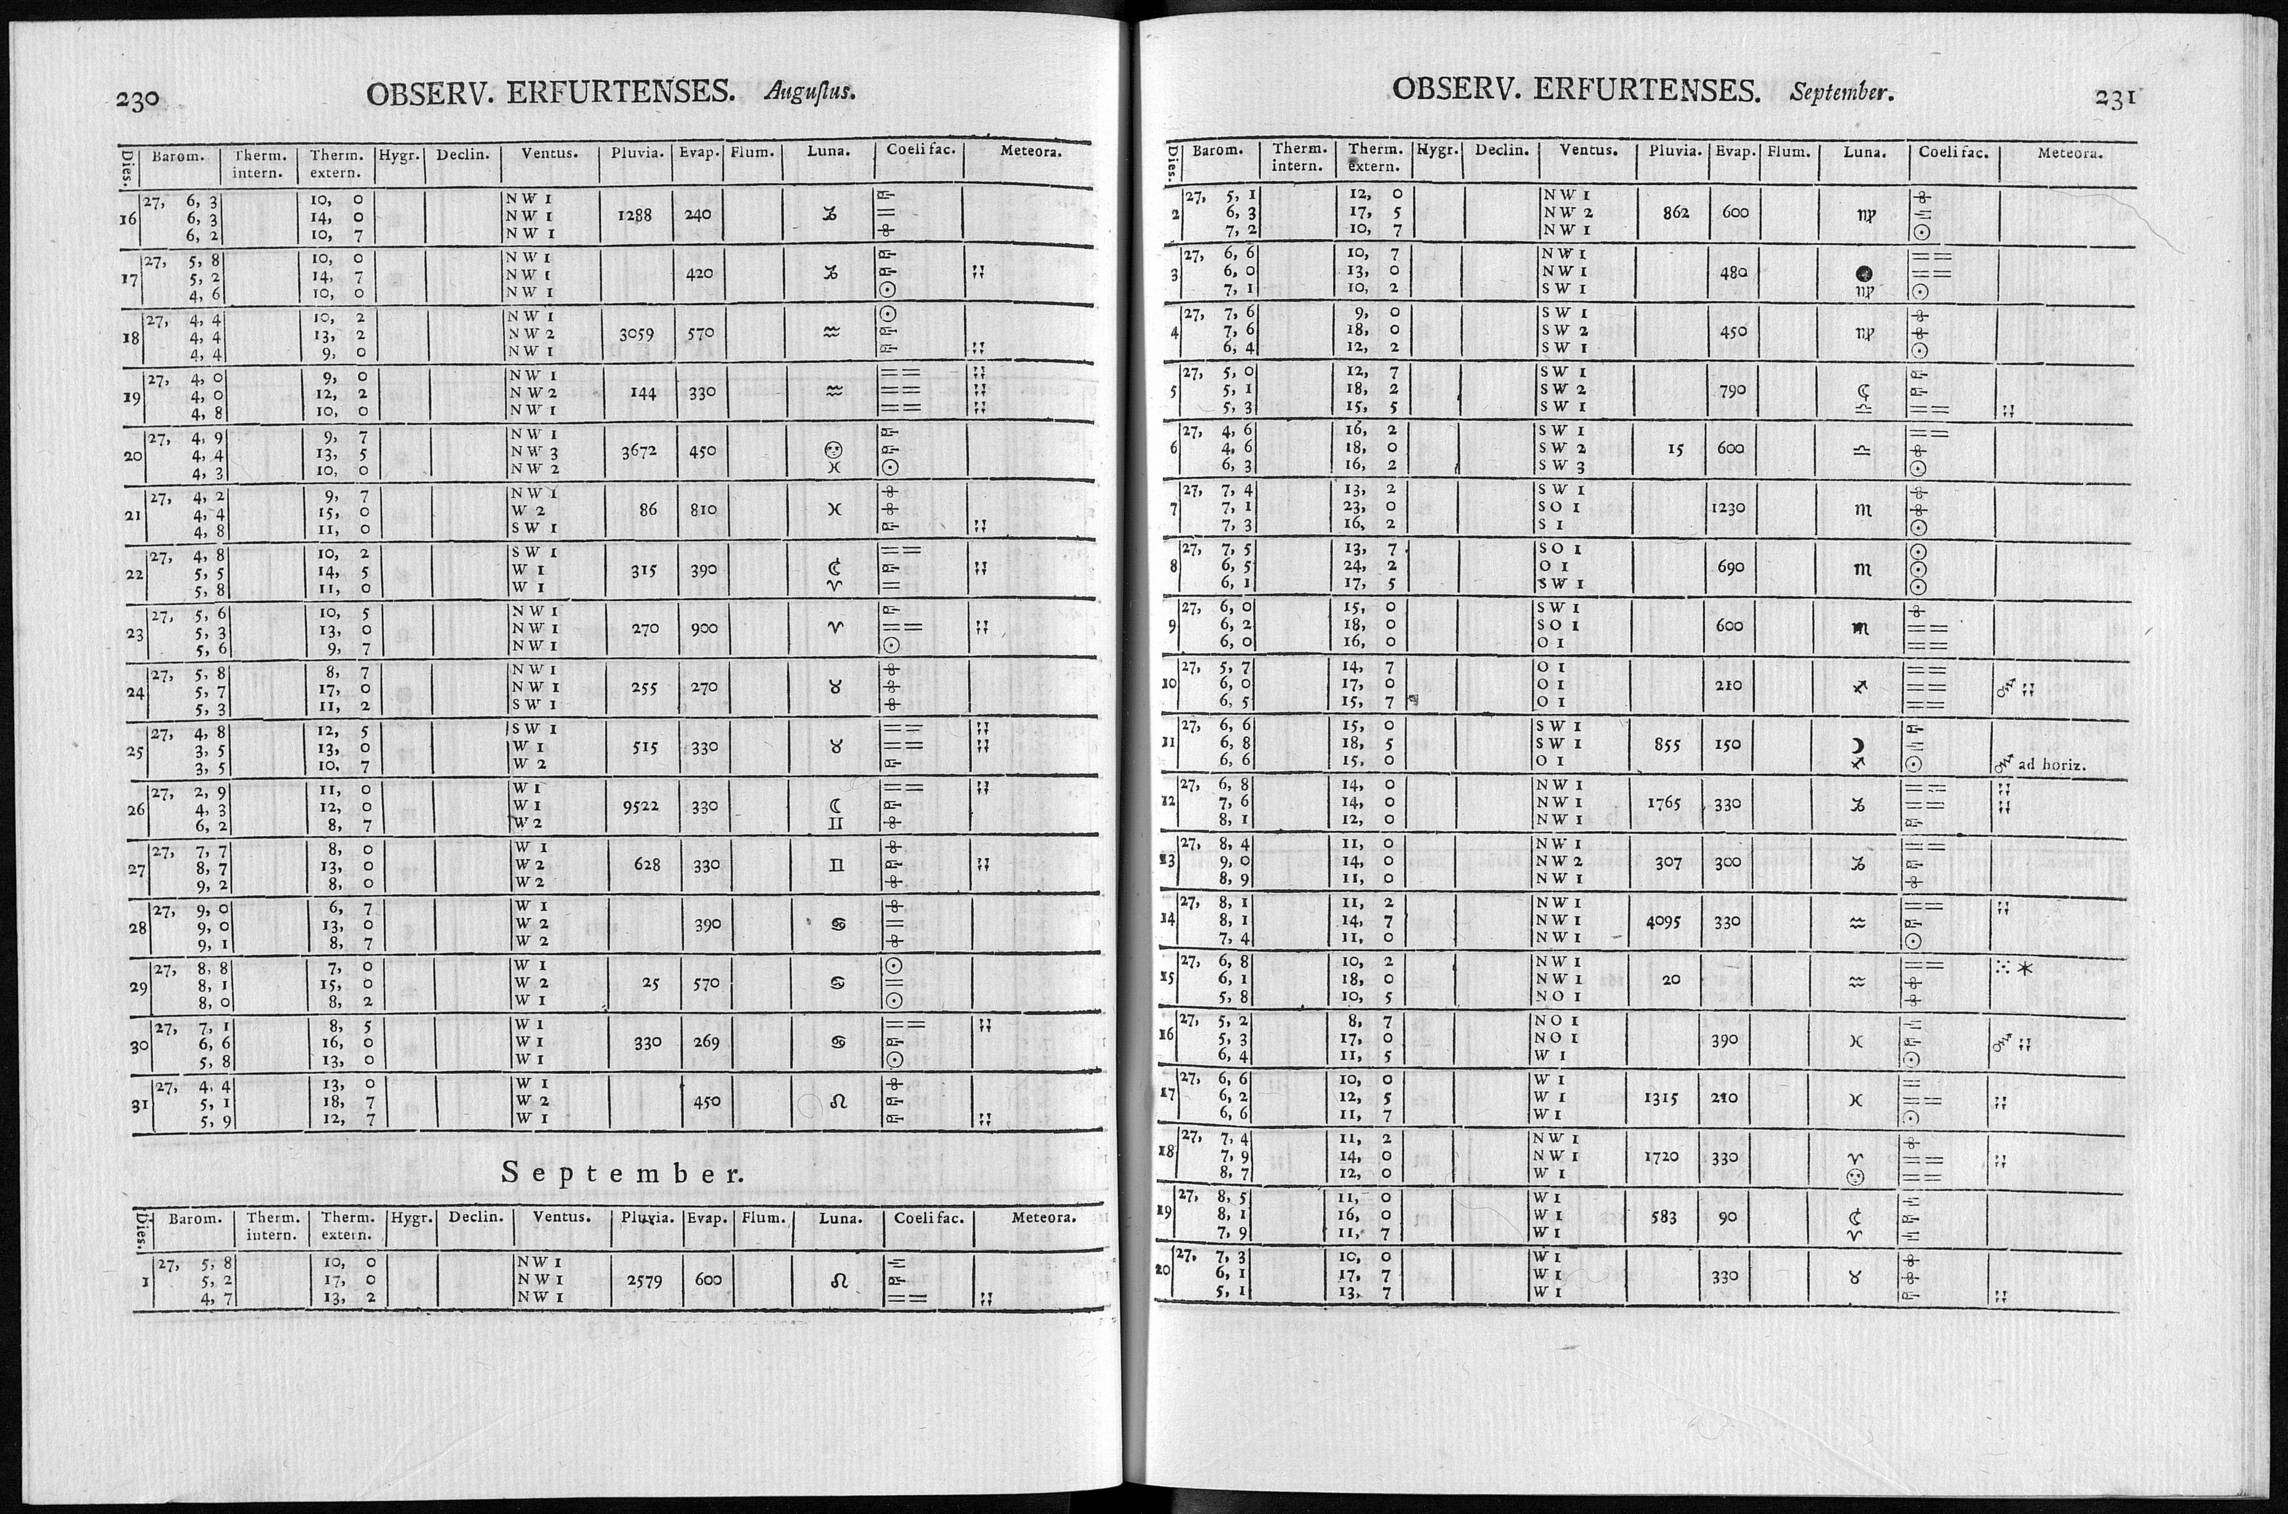 230 OBSERV. ERFURTENSES. Auguſtus.
Dies. Barom. Therm. intern. Therm. extern. Hygr. Declin. Ventus. Pluvia. Evap. Flum. Luna. Coeli fac. Meteora.
27, 6, 3 10, 0 NW 1
16 6, 3 14, 0 NW 1 1288 240 ♑
6, 2 10, 7 NW 1
27, 5, 8 10, 0 NW 1
17 5, 2 14, 7 NW 1 420 ♑
4, 6 10, 0 NW 1 ☉
27, 4, 4 10, 2 NW 1 ☉
18 4, 4 13, 2 NW 2 3059 570 ♒
4, 4 9, 0 NW 1
27, 4, 0 9, 0 NW 1 ==
19 4, 0 12, 2 NW 2 144 330 ♒ ==
4, 8 10, 0 NW 1 ==
27, 4, 9 9, 7 NW 1
20 4, 4 13, 5 NW 3 3672 450
4, 3 10, 0 NW 2 ♓ ☉
27, 4, 2 9, 7 NW 1
21 4, 4 15, 0 W 2 86 810 ♓
4, 8 11, 0 SW 1
27, 4, 8 10, 2 SW 1 ==
22 5, 5 14, 5 W 1 315 390
5, 8 11, 0 W 1 ♈ =
27, 5, 6 10, 5 NW 1
23 5, 3 13, 0 NW 1 270 900 ♈ ==
5, 6 9, 7 NW 1 ☉
27, 5, 8 8, 7 NW 1
24 5, 7 17, 0 NW 1 255 270 ♉
5, 3 11, 2 SW 1
27, 4, 8 12, 5 SW 1 ==
25 3, 5 13, 0 W 1 515 330 ♉ ==
3, 5 10, 7 W 2
27, 2, 9 11, 0 W 1 ==
26 4, 3 12, 0 W 1 9522 330 ☾
6, 2 8, 7 W 2 ♊
27, 7, 7 8, 0 W 1
27 8, 7 13, 0 W 2 628 330 ♊
9, 2 8, 0 W 2
27, 9, 0 6, 7 W 1
28 9, 0 13, 0 W 2 390 ♋ =
9, 1 8, 7 W 2
27, 8, 8 7, 0 W 1 ☉
29 8, 1 15, 0 W 2 25 570 ♋ =
8, 0 8, 2 W 1 ☉
27, 7, 1 8, 5 W 1 ==
30 6, 6 16, 0 W 1 330 269 ♋
5, 8 13, 0 W 1 ☉
27, 4, 4 13, 0 W 1
31 5, 1 18, 7 W 2 450 ♌
5, 9 12, 7 W 1
September.
Dies. Barom. Therm. intern. Therm. extern. Hygr. Declin. Ventus. Pluvia. Evap. Flum. Luna. Coeli fac. Meteora.
27, 5, 8 10, 0 NW 1
1 5, 2 17, 0 NW 1 2579 600 ♌
4, 7 13, 2 NW 1 ==
OBSERV. ERFURTENSES. September. 231
Dies. Barom. Therm. intern. Therm. extern. Hygr. Declin. Ventus. Pluvia. Evap. Flum. Luna. Coeli fac. Meteora.
27, 5, 1 12, 0 NW 1
2 6, 3 17, 5 NW 2 862 600 ♍
7, 2 10, 7 NW 1 ☉
27, 6, 6 10, 7 NW 1 ==
3 6, 0 13, 0 NW 1 480 ● ==
7, 1 10, 2 SW 1 ♍ ☉
27, 7, 6 9, 0 SW 1
4 7, 6 18, 0 SW 2 450 ♍
6, 4 12, 2 SW 1 ☉
27, 5, 0 12, 7 SW 1
5 5, 1 18, 2 SW 2 790
5, 3 15, 5 SW 1 ♎ ==
27, 4, 6 16, 2 SW 1 ==
6 4, 6 18, 0 SW 2 15 600 ♎
6, 3 16, 2 SW 3 ☉
27, 7, 4 13, 2 SW 1
7 7, 1 23, 0 SO 1 1230 ♏
7, 3 16, 2 S 1 ☉
27, 7, 5 13, 7 SO 1 ☉
8 6, 5 24, 2 O 1 690 ♏ ☉
6, 1 17, 5 SW 1 ☉
27, 6, 0 15, 0 SW 1
9 6, 2 18, 0 SO 1 600 ♏ ==
6, 0 16, 0 O 1 ==
27, 5, 7 14, 7 O 1 ==
10 6, 0 17, 0 O 1 210 ♐ ==
6, 5 15, 7 O 1 ==
27, 6, 6 15, 0 SW 1
11 6, 8 18, 5 SW 1 855 150 ☽
6, 6 15, 0 O 1 ♐ ☉ ad horiz.
27, 6, 8 14, 0 NW 1 ==
12 7, 6 14, 0 NW 1 1765 330 ♑ ==
8, 1 12, 0 NW 1
27, 8, 4 11, 0 NW 1 ==
13 9, 0 14, 0 NW 2 307 300 ♑
8, 9 11, 0 NW 1
27, 8, 1 11, 2 NW 1 ==
14 8, 1 14, 7 NW 1 4095 330 ♒
7, 4 11, 0 NW 1 ☉
27, 6, 8 10, 2 NW 1 ==
15 6, 1 18, 0 NW 1 20 ♒
5, 8 10, 5 NO 1
27, 5, 2 8, 7 NO 1
16 5, 3 17, 0 NO 1 390 ♓
6, 4 11, 5 W 1 ☉
27, 6, 6 10, 0 W 1 =
17 6, 2 12, 5 W 1 1315 210 ♓ ==
6, 6 11, 7 W 1 ☉
27, 7, 4 11, 2 NW 1
18 7, 9 14, 0 NW 1 1720 330 ♈ ==
8, 7 12, 0 W 1 ==
27, 8, 5 11, 0 W 1
19 8, 1 16, 0 W 1 583 90
7, 9 11, 7 W 1 ♈
27, 7, 3 10, 0 W 1
20 6, 1 17, 7 W 1 330 ♉
5, 1 13, 7 W 1